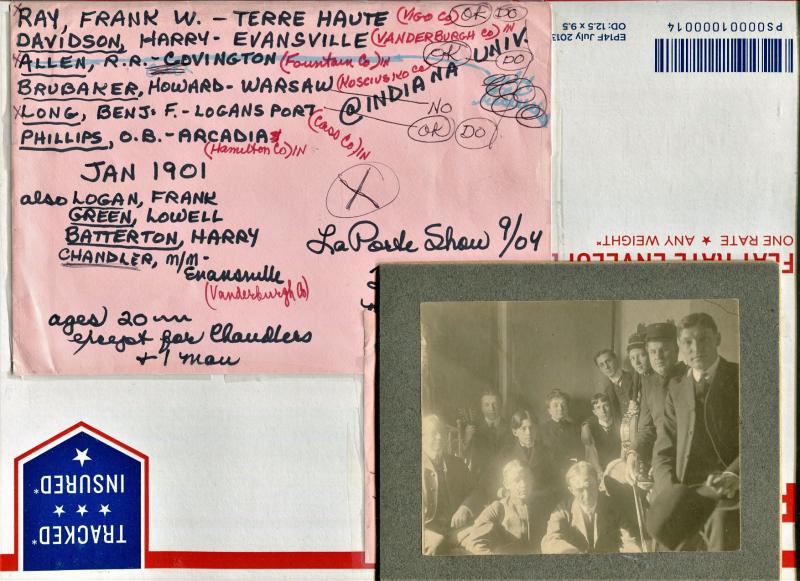 RAY, FRANK W. - TERRE HAUTE (VIGO Co) IN OK DO
DAVIDSON, HARRY - EVANSVILLE (VANDERBURGH Co) IN
ALLEN, R.R. - COVINGTON (Fountain Co) IN OK DO
BRUBAKER, HOWARD - WARSAW (KOSCIUSKO Co)
@ INDIANA UNIV.
X LONG, BENJ. F. - LOGANSPORT (Cass Co) IN NO
PHILLIPS, O.B. - ARCADIA (Hamilton Co) IN OK DO
JAN 1901
also LOGAN, FRANK
GREEN, LOWELL
BATTERTON, HARRY
CHANDLER, M/M -
Evansville
(Vanderburgh Co)
X
LaPorte Show 9/04
ages 20
except for Chandlers
+ 1 man
EP14F July 2013
OD: 12.5 x 9.5
PS00001000014
ONE RATE ★ ANY WEIGHT*
FLAT RATE ENVELOPE
TRACKED*
★ ★ ★
INSURED*